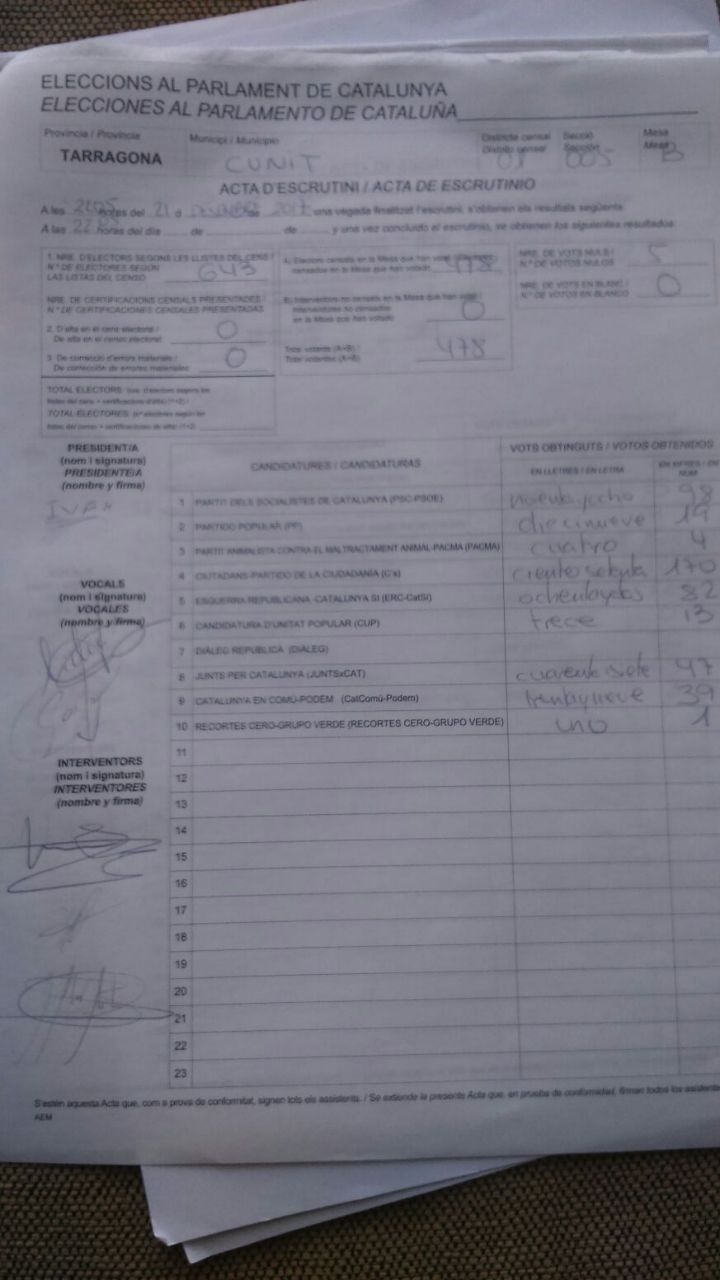 ELECCIONS AL PARLAMENT DE CATALUNYA
ELECCIONES AL PARLAMENTO DE CATALUÑA
Provincia / Província Municipi / Municipio Districte censal Secció Mesa
TARRAGONA CUNIT Distrito censal 01 Sección 005 Mesa B
ACTA D'ESCRUTINI / ACTA DE ESCRUTINIO
A les hores del 21 d de 2017 una vegada finalitzat l'escrutini, s'obtenen els resultats següents:
A las 22.05 horas del día de de y una vez concluido el escrutinio, se obtienen los siguientes resultados:
1. NRE. D'ELECTORS SEGONS LES LLISTES DEL CENS /
N.º DE ELECTORES SEGÚN
LAS LISTAS DEL CENSO 643
NRE. DE CERTIFICACIONS CENSALS PRESENTADES /
N.º DE CERTIFICACIONES CENSALES PRESENTADAS
2. D'alta en el cens electoral /
De alta en el censo electoral: 0
3. De correcció d'errors materials /
De corrección de errores materiales: 0
TOTAL ELECTORS
TOTAL ELECTORES
A) Electors censats en la Mesa que han votat
censados en la Mesa que han votado 478
B) Interventors no censats en la Mesa que han votat /
Interventores no censados
en la Mesa que han votado 0
Total votants (A+B) /
Total votantes (A+B) 478
NRE. DE VOTS NULS / 5
N.º DE VOTOS NULOS
NRE. DE VOTS EN BLANC / 0
N.º DE VOTOS EN BLANCO
PRESIDENT/A
(nom i signatura)
PRESIDENTE/A
(nombre y firma)
VOCALS
(nom i signatura)
VOCALES
(nombre y firma)
INTERVENTORS
(nom i signatura)
INTERVENTORES
(nombre y firma)
CANDIDATURES / CANDIDATURAS VOTS OBTINGUTS / VOTOS OBTENIDOS
EN LLETRES / EN LETRA EN XIFRES / EN NUM
1 PARTIT DELS SOCIALISTES DE CATALUNYA (PSC-PSOE) noventa y ocho 98
2 PARTIDO POPULAR (PP) diecinueve 19
3 PARTIT ANIMALISTA CONTRA EL MALTRACTAMENT ANIMAL-PACMA (PACMA) cuatro 4
4 CIUTADANS-PARTIDO DE LA CIUDADANÍA (C's) ciento setenta 170
5 ESQUERRA REPUBLICANA -CATALUNYA SÍ (ERC-CatSí) ochenta y dos 82
6 CANDIDATURA D'UNITAT POPULAR (CUP) trece 13
7 DIÀLEG REPUBLICÀ (DIÀLEG)
8 JUNTS PER CATALUNYA (JUNTSxCAT) cuarenta siete 47
9 CATALUNYA EN COMÚ-PODEM (CatComú-Podem) treinta y nueve 39
10 RECORTES CERO-GRUPO VERDE (RECORTES CERO-GRUPO VERDE) uno 1
11
12
13
14
15
16
17
18
19
20
21
22
23
S'estén aquesta Acta que, com a prova de conformitat, signen tots els assistents. / Se extiende la presente Acta que, en prueba de conformidad, firman todos los asistentes
AEM